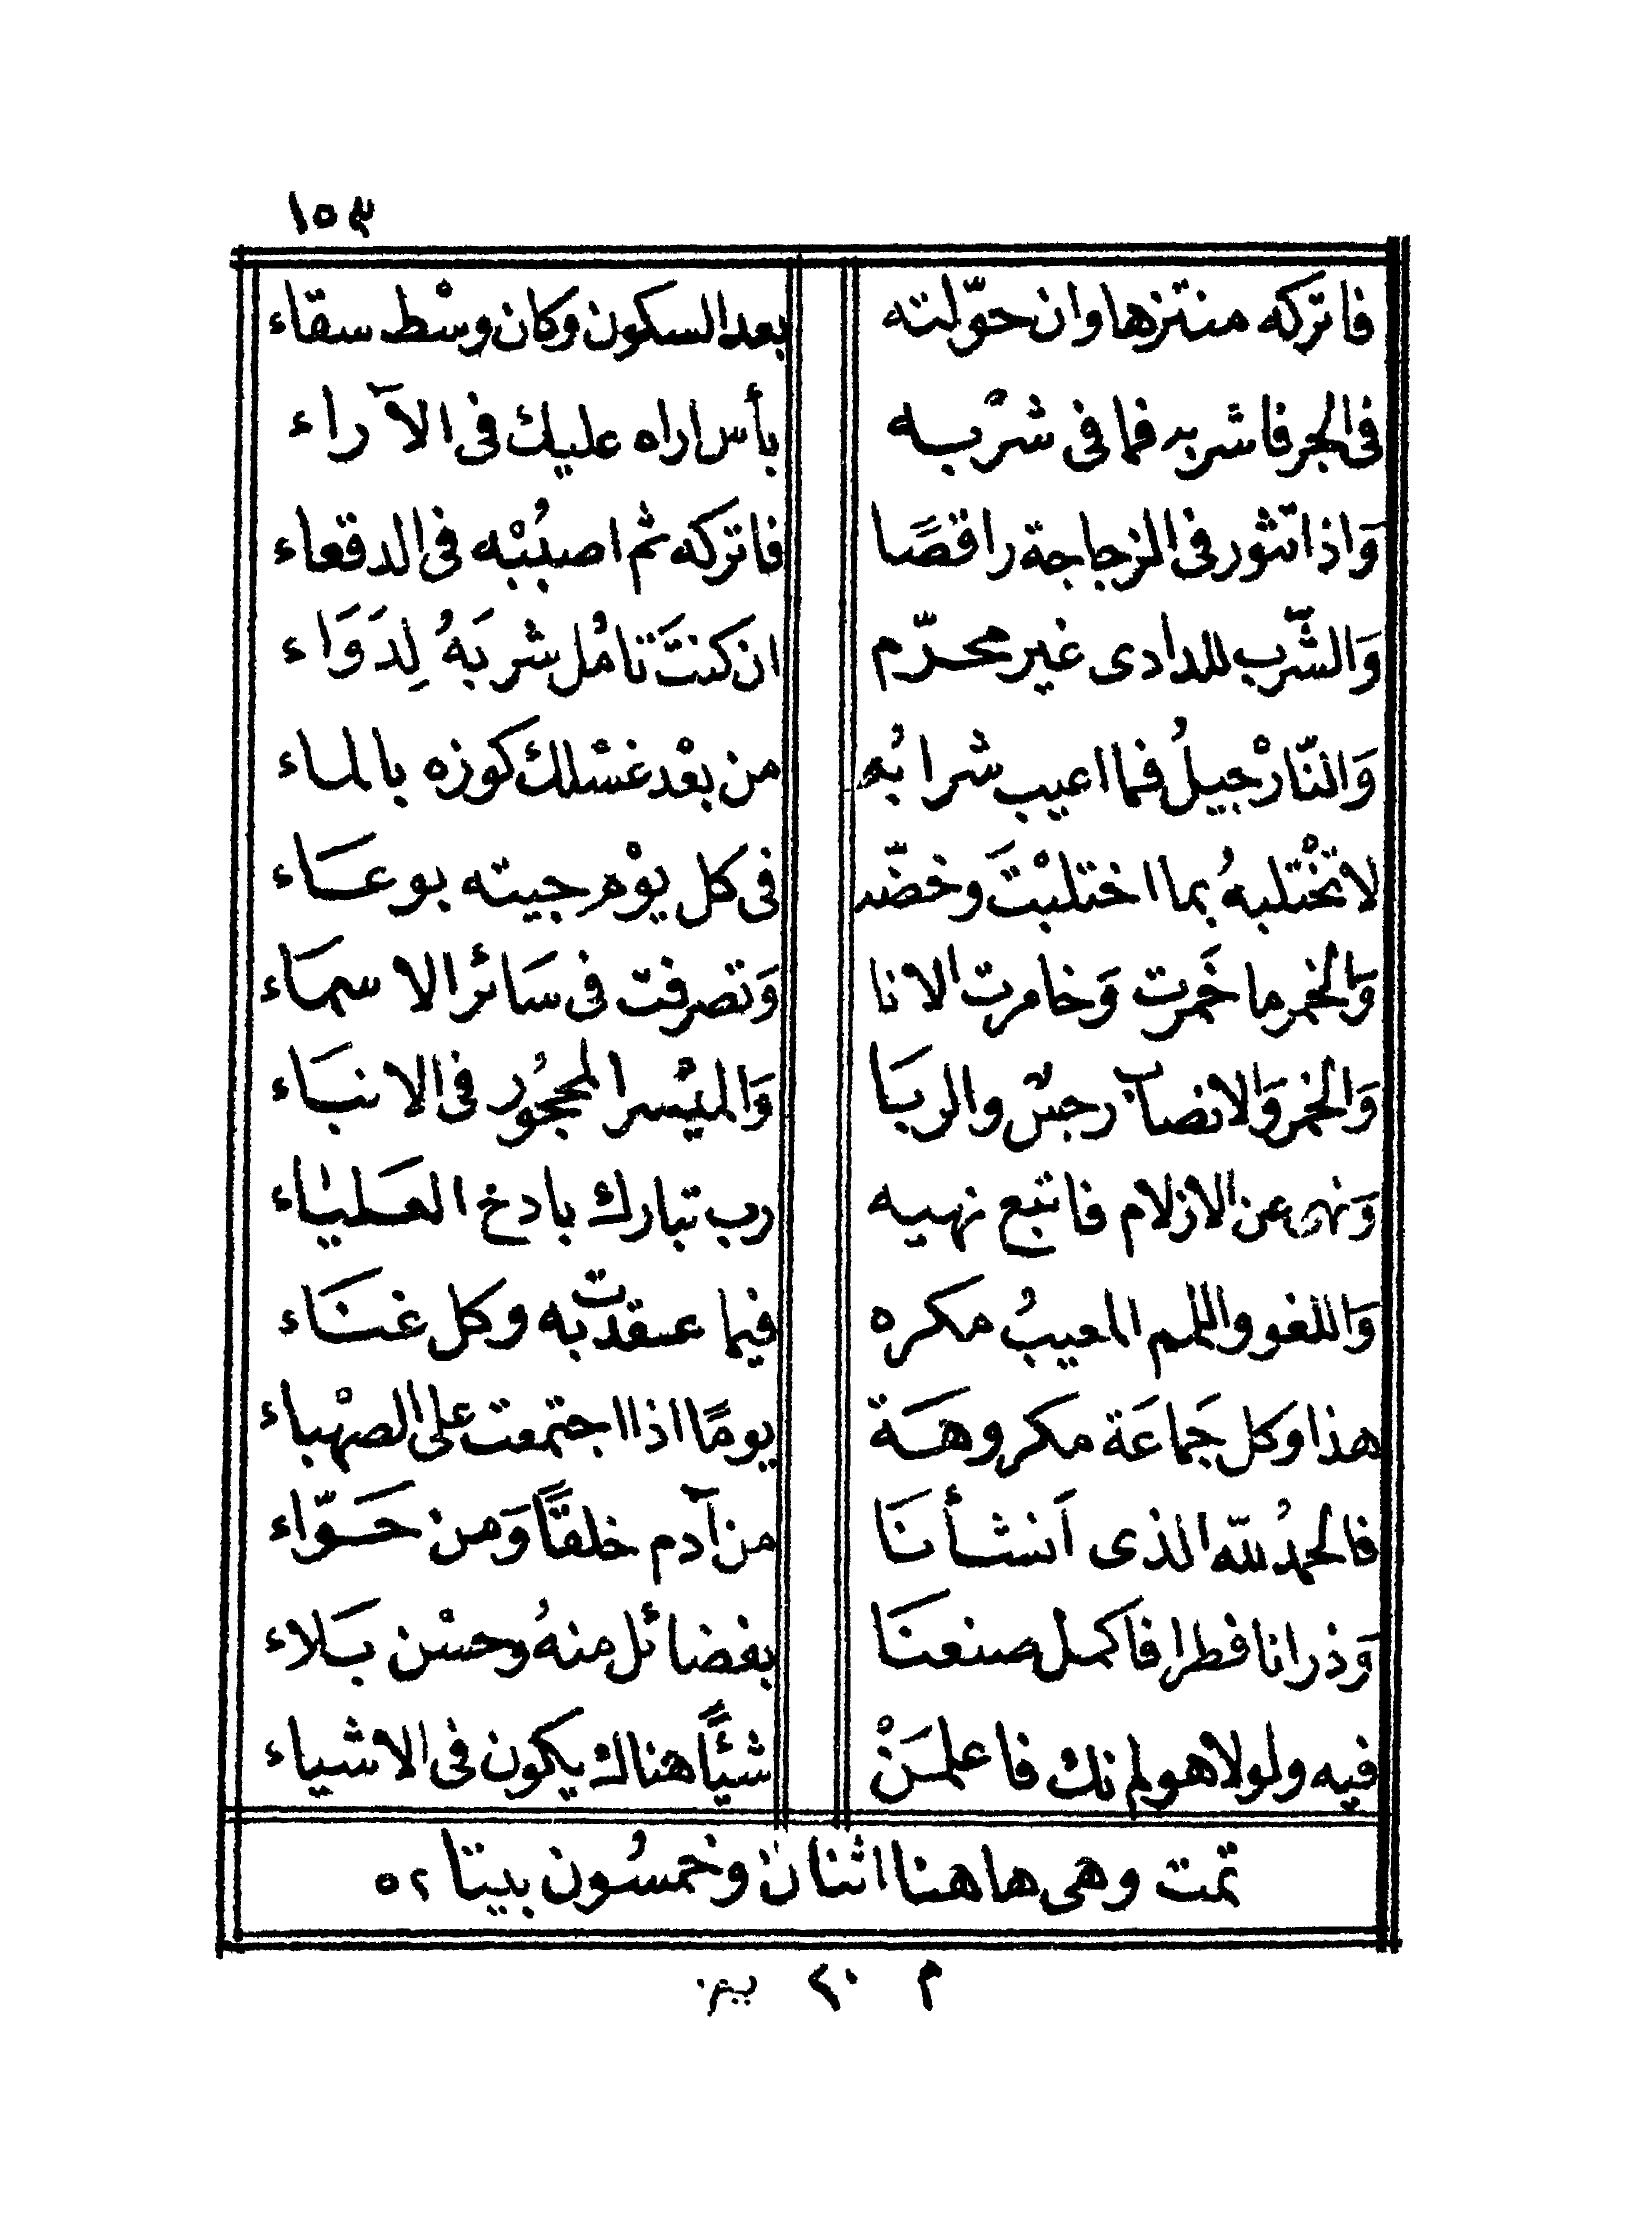 ١٥٣
فاتركه منتزها وان حوّلته بعد السكون وكان وسْط سقاء
فى الجر فاشربه فما فى شرْبه بأس اراه عليك فى الآراء
وَاذا تثور فى الزجاجة راقصًا فاتركه ثم اصببْه فى الدقعاء
وَالشّرب للدادى غير محرّم ان كنتَ تامُل شربَهُ لِدَوَاء
وَالنّارْجيلُ فما اعيب شرابُه من بعْد غسْلك كوزه بالماء
لا تخْتلبهُ بما اختلبْتَ وخضّد فى كل يوْم جيته بوعَاء
وَالخمر ما خَمرت وَخامرت الانا وَتصرفت فى سَائر الاسمَاء
وَالخمر وَالانصاب رجسٌ والربَا وَالميْسر المحجُور فى الانبَاء
وَنهى عن الازلام فاتبع نهيه رب تبارك باذخ العَليَاء
وَاللغو واللمم المعيبُ مكره فيما عقدت به وكل غنَاء
هذا وكل جَماعَة مكروهَة يومًا اذا اجتمعت على الصهْباء
فالحمدُ للّه الذى اَنشأنَا من آدم خلقًا وَمن حَوّاء
وَذرانا فطرا فاكمل صنعنَا بفضائل منهُ وحسْن بَلاء
فيه ولولا هو لم نك فاعلمَنْ شيئًا هناك يكون فى الاشياء
تمت وهى هاهنا اثنان وخمسُون بيتا ٥٢
م ٢٠